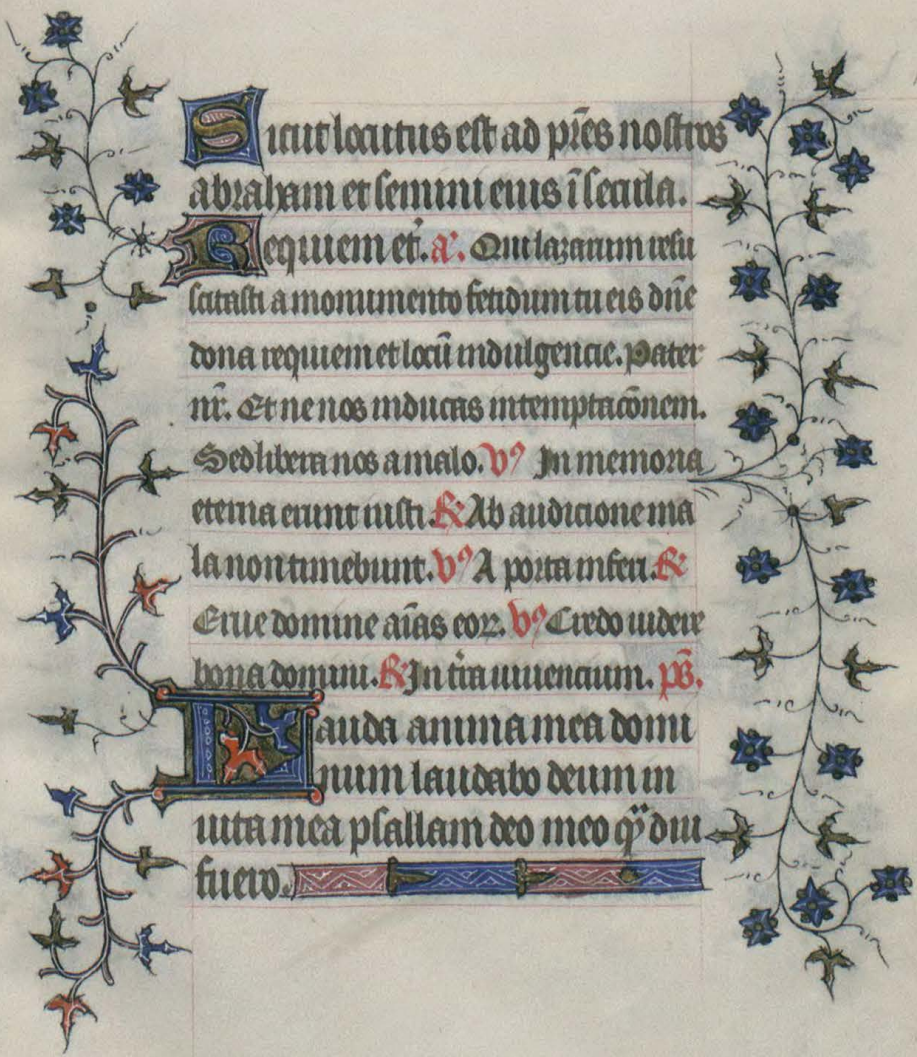 Sicut locutus est ad p̄res nostros
abraham et semini eius ī secula.
Requiem et̾. a̾. Qui lazarum resu
scitasti a monumento fetidum tu eis dn̄e
dona requiem et locū indulgencie. Pater
nr̄. Et ne nos inducas in temptac̄onem.
Sed libera nos a malo. V᷒ In memoria
eterna erunt iusti ℟ Ab audicione ma
la non timebunt. V᷒ A porta inferi. ℟
Erue domine aīas eoꝝ. V᷒ Credo videre
bona domini. ℟ In t̄ra viuencium. p̄s.
Lauda anima mea domi
num laudabo deum in
uita mea psallam deo meo qͣ̾diu
fuero.